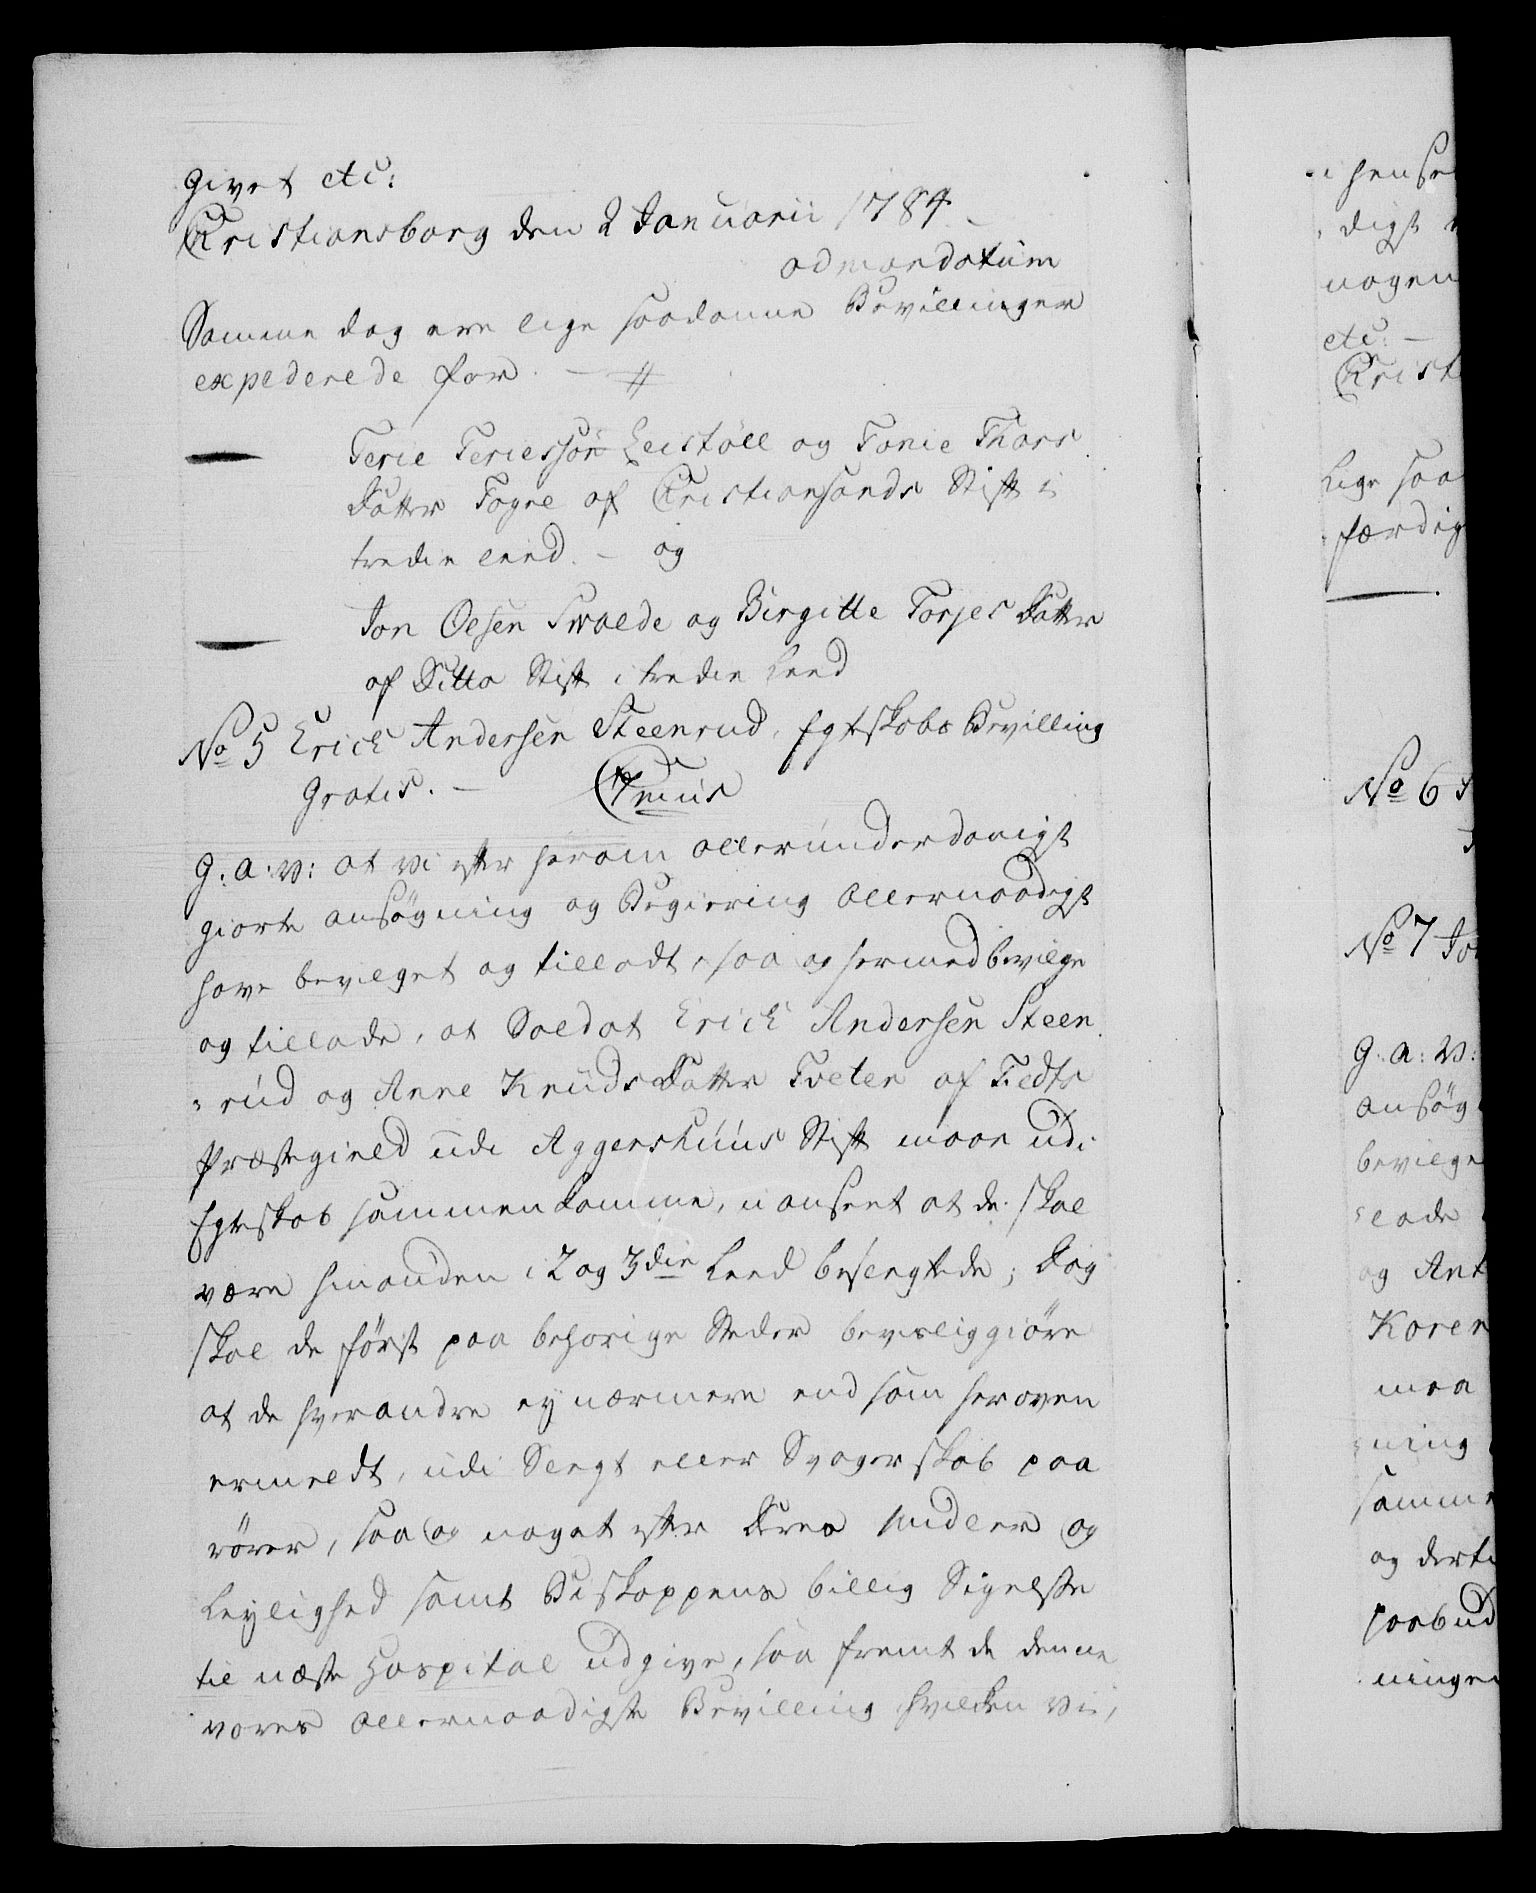 Givet etc:
Christiansborg den 2 Januarii 1784
ad mandatum
Samme dag ere lige saadanne Bevillinger
expederede for. — #
Terie Teriessøn Leistöll og Tonie Thors
Datter Togne af Christiansands Stift i
tredie Leed. — og
Jon Oelsen Swalde og Birgitte Torjes Datter
af Ditto Stift i tredie Leed
No 5 Erich Andersen Steenrud, Egteskabs Bevilling
Gratis. —
G: A: V: at vi efter herom allerunderdanigst
giorte ansøgning og Begiering allernaadigst
have bevilget og tilladt, saa og hermed bevilge
og tillade, at Soldat Erich Andersen Steen
rud og Anne Knuds Datter Tveten af Fledts
Præstegield udi Aggershuus Stift maae udi
Egteskab sammenkomme, uanseet at de skal
være hinanden i 2 og 3die Leed beslegtede; Dog
skal de først paa behørige Steder bevisliggiøre
at de hverandre ey nærmere end som heroven
ermeldt, udi Slegt eller Svogerskab paa
rører, saa og noget efter deres Midler og
Leylighed samt Biskoppens billig Sigelse
til næste Hospital udgive, saa fremt de denne
vores allernaadigste Bevilling hvilken vii,
i hense
digst
nogen
etc: —
Christ
Lige saa
færdig
No 6
No 7 Jo
G: A: V:
ansøg
bevilge
lade
og Ant
Karen
maa
ning
samme
og derti
forbud
ningen